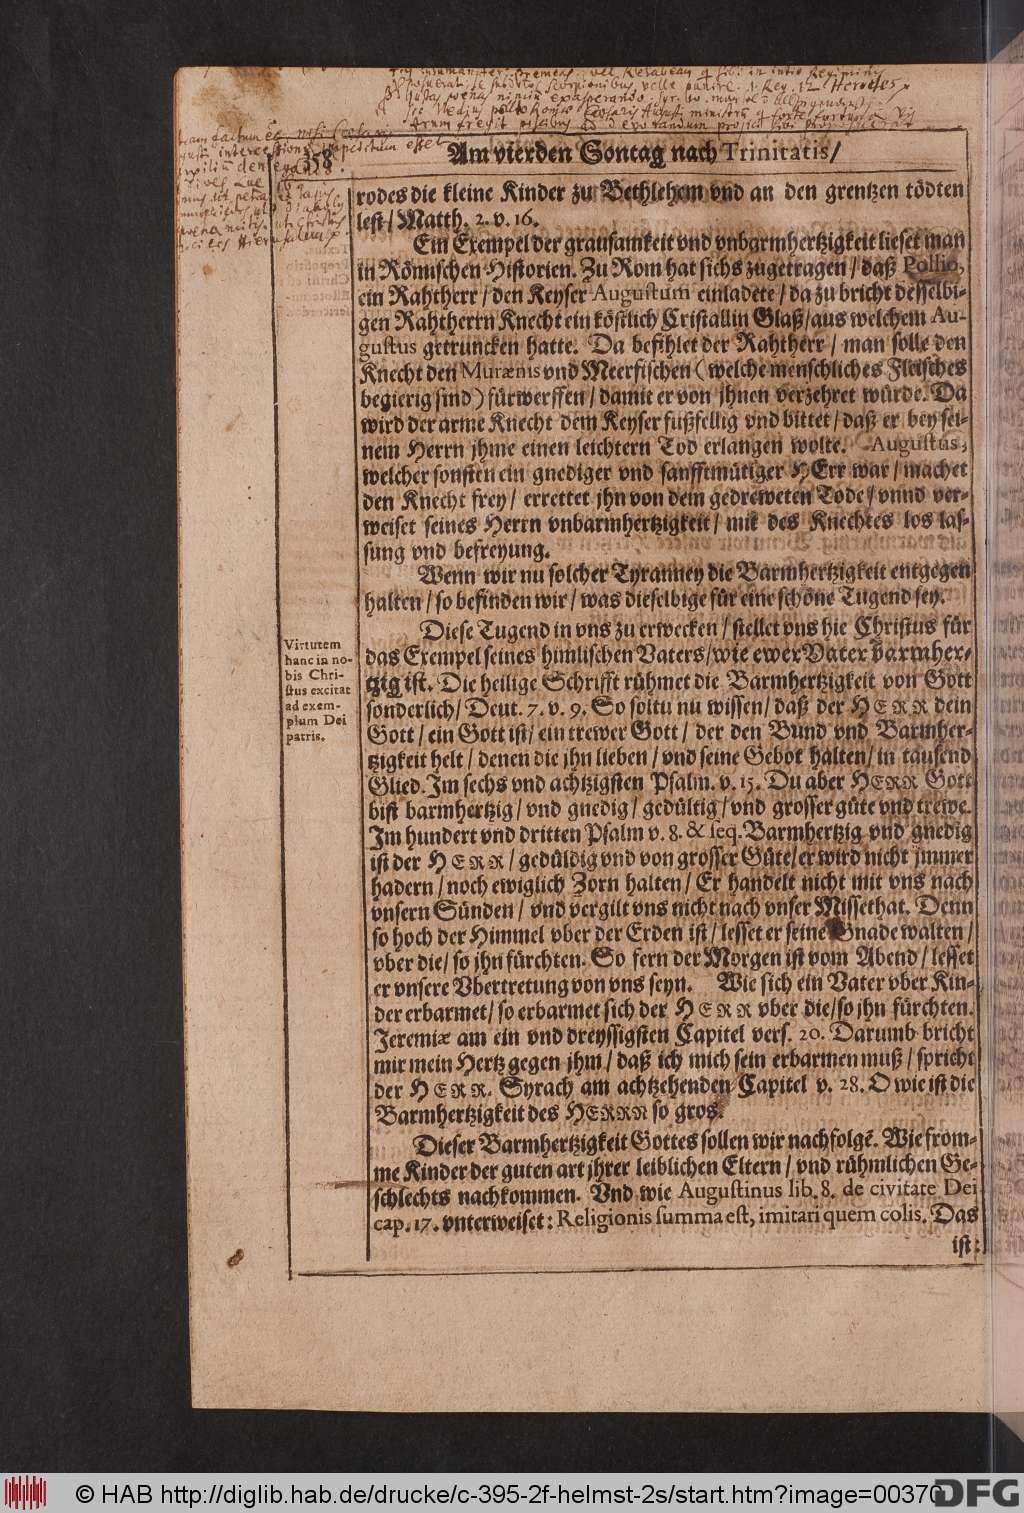 358
Am vierden Sontag nach Trinitatis/
rodes die kleine Kinder zu Bethlehem vnd an den grentzen tödten
lest/ Matth. 2. v. 16.
Ein Exempel der grausamkeit vnd vnbarmhertzigkeit lieset man
in Römischen Historien. Zu Rom hat sichs zugetragen/ daß Pollio,
ein Rahtherr/ den Keyser Augustum einladete/ da zu bricht desselbi-
gen Rahtherrn Knecht ein köstlich Cristallin Glaß/ aus welchem Au-
gustus getruncken hatte. Da befihlet der Rahtherr/ man solle den
Knecht den Murænis vnd Meerfischen (welche menschliches Fleisches
begierig sind) fürwerffen/ damit er von jhnen verzehret würde. Da
wird der arme Knecht dem Keyser fußfellig vnd bittet/ daß er bey sei-
nem Herrn jhme einen leichtern Tod erlangen wolte. Augustus,
welcher sonsten ein gnediger vnd sanfftmütiger HErr war/ machet
den Knecht frey/ errettet jhn von dem gedreweten Tode/ vnnd ver-
weiset seines Herrn vnbarmhertzigkeit/ mit des Knechtes los las-
sung vnd befreyung.
Wenn wir nu solcher Tyranney die Barmhertzigkeit entgegen
halten/ so befinden wir/ was dieselbige für eine schöne Tugend sey.
Virtutem
hanc in no-
bis Chri-
stus excitat
ad exem-
plum Dei
patris.
Diese Tugend in vns zu erwecken/ stellet vns hie Christus für
das Exempel seines himlischen Vaters/ wie ewer Vater barmher-
tzig ist. Die heilige Schrifft rühmet die Barmhertzigkeit von Gott
sonderlich/ Deut. 7. v. 9. So soltu nu wissen/ daß der HERR dein
Gott/ ein Gott ist/ ein trewer Gott/ der den Bund vnd Barmher-
tzigkeit helt/ denen die jhn lieben/ vnd seine Gebot halten/ in tausend
Glied. Im sechs vnd achtzigsten Psalm. v. 15. Du aber HERR Gott
bist barmhertzig/ vnd gnedig/ gedültig/ vnd grosser güte vnd trewe.
Im hundert vnd dritten Psalm v. 8. & seq. Barmhertzig vnd gnedig
ist der HERR/ gedüldig vnd von grosser Güte/ er wird nicht jmmer
hadern/ noch ewiglich Zorn halten/ Er handelt nicht mit vns nach
vnsern Sünden/ vnd vergilt vns nicht nach vnser Missethat. Denn
so hoch der Himmel vber der Erden ist/ lesset er seine Gnade walten/
vber die/ so jhn fürchten. So fern der Morgen ist vom Abend/ lesset
er vnsere Vbertretung von vns seyn. Wie sich ein Vater vber Kin-
der erbarmet/ so erbarmet sich der HERR vber die/ so jhn fürchten.
Jeremiæ am ein vnd dreyssigsten Capitel vers. 20. Darumb bricht
mir mein Hertz gegen jhm/ daß ich mich sein erbarmen muß/ spricht
der HERR. Syrach am achtzehenden Capitel v. 28. O wie ist die
Barmhertzigkeit des HERRN so gros.
Dieser Barmhertzigkeit Gottes sollen wir nachfolgē. Wie from-
me Kinder der guten art jhrer leiblichen Eltern/ vnd rühmlichen Ge-
schlechts nachkommen. Vnd wie Augustinus lib. 8. de civitate Dei
cap. 17. vnterweiset: Religionis summa est, imitari quem colis. Das
ist:
© HAB http://diglib.hab.de/drucke/c-395-2f-helmst-2s/start.htm?image=00370
DFG